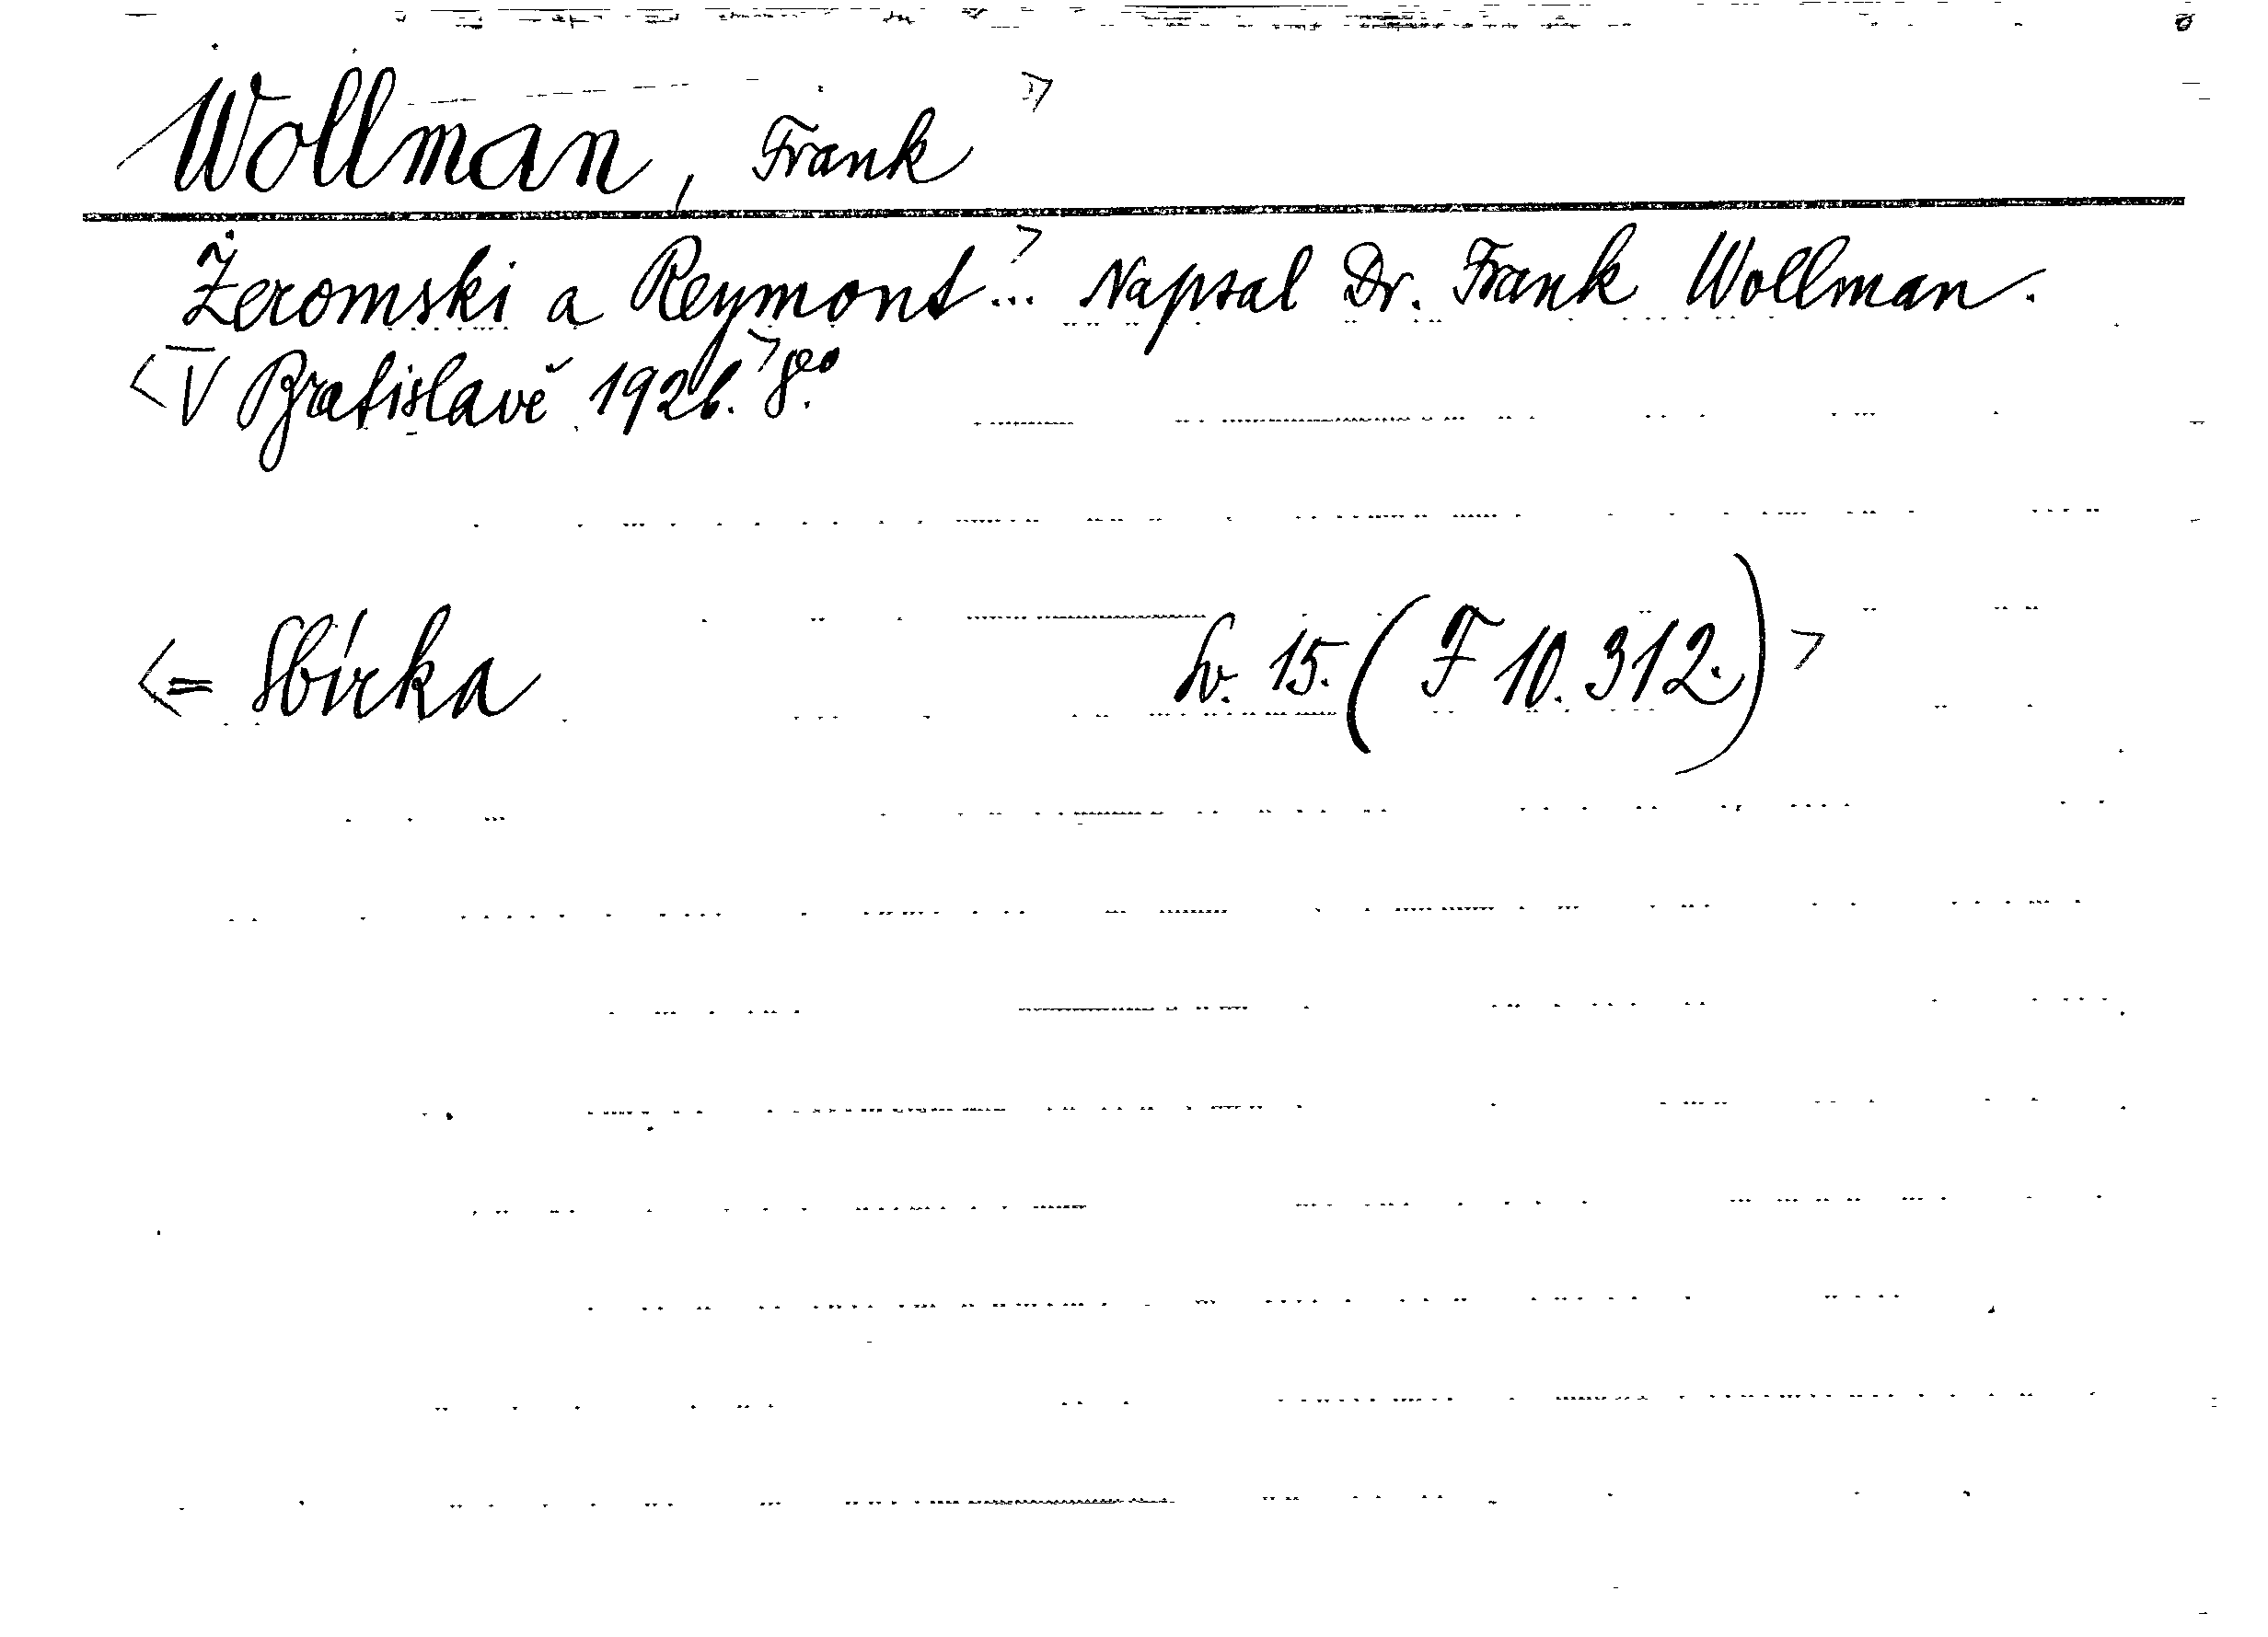 Wollman, Frank >
Żeromski a Reymont...> Napsal Dr. Frank Wollman.
<V Bratislavě 1926.> 8°.
<= Sbírka Sv. 15. (F 10.312.)>